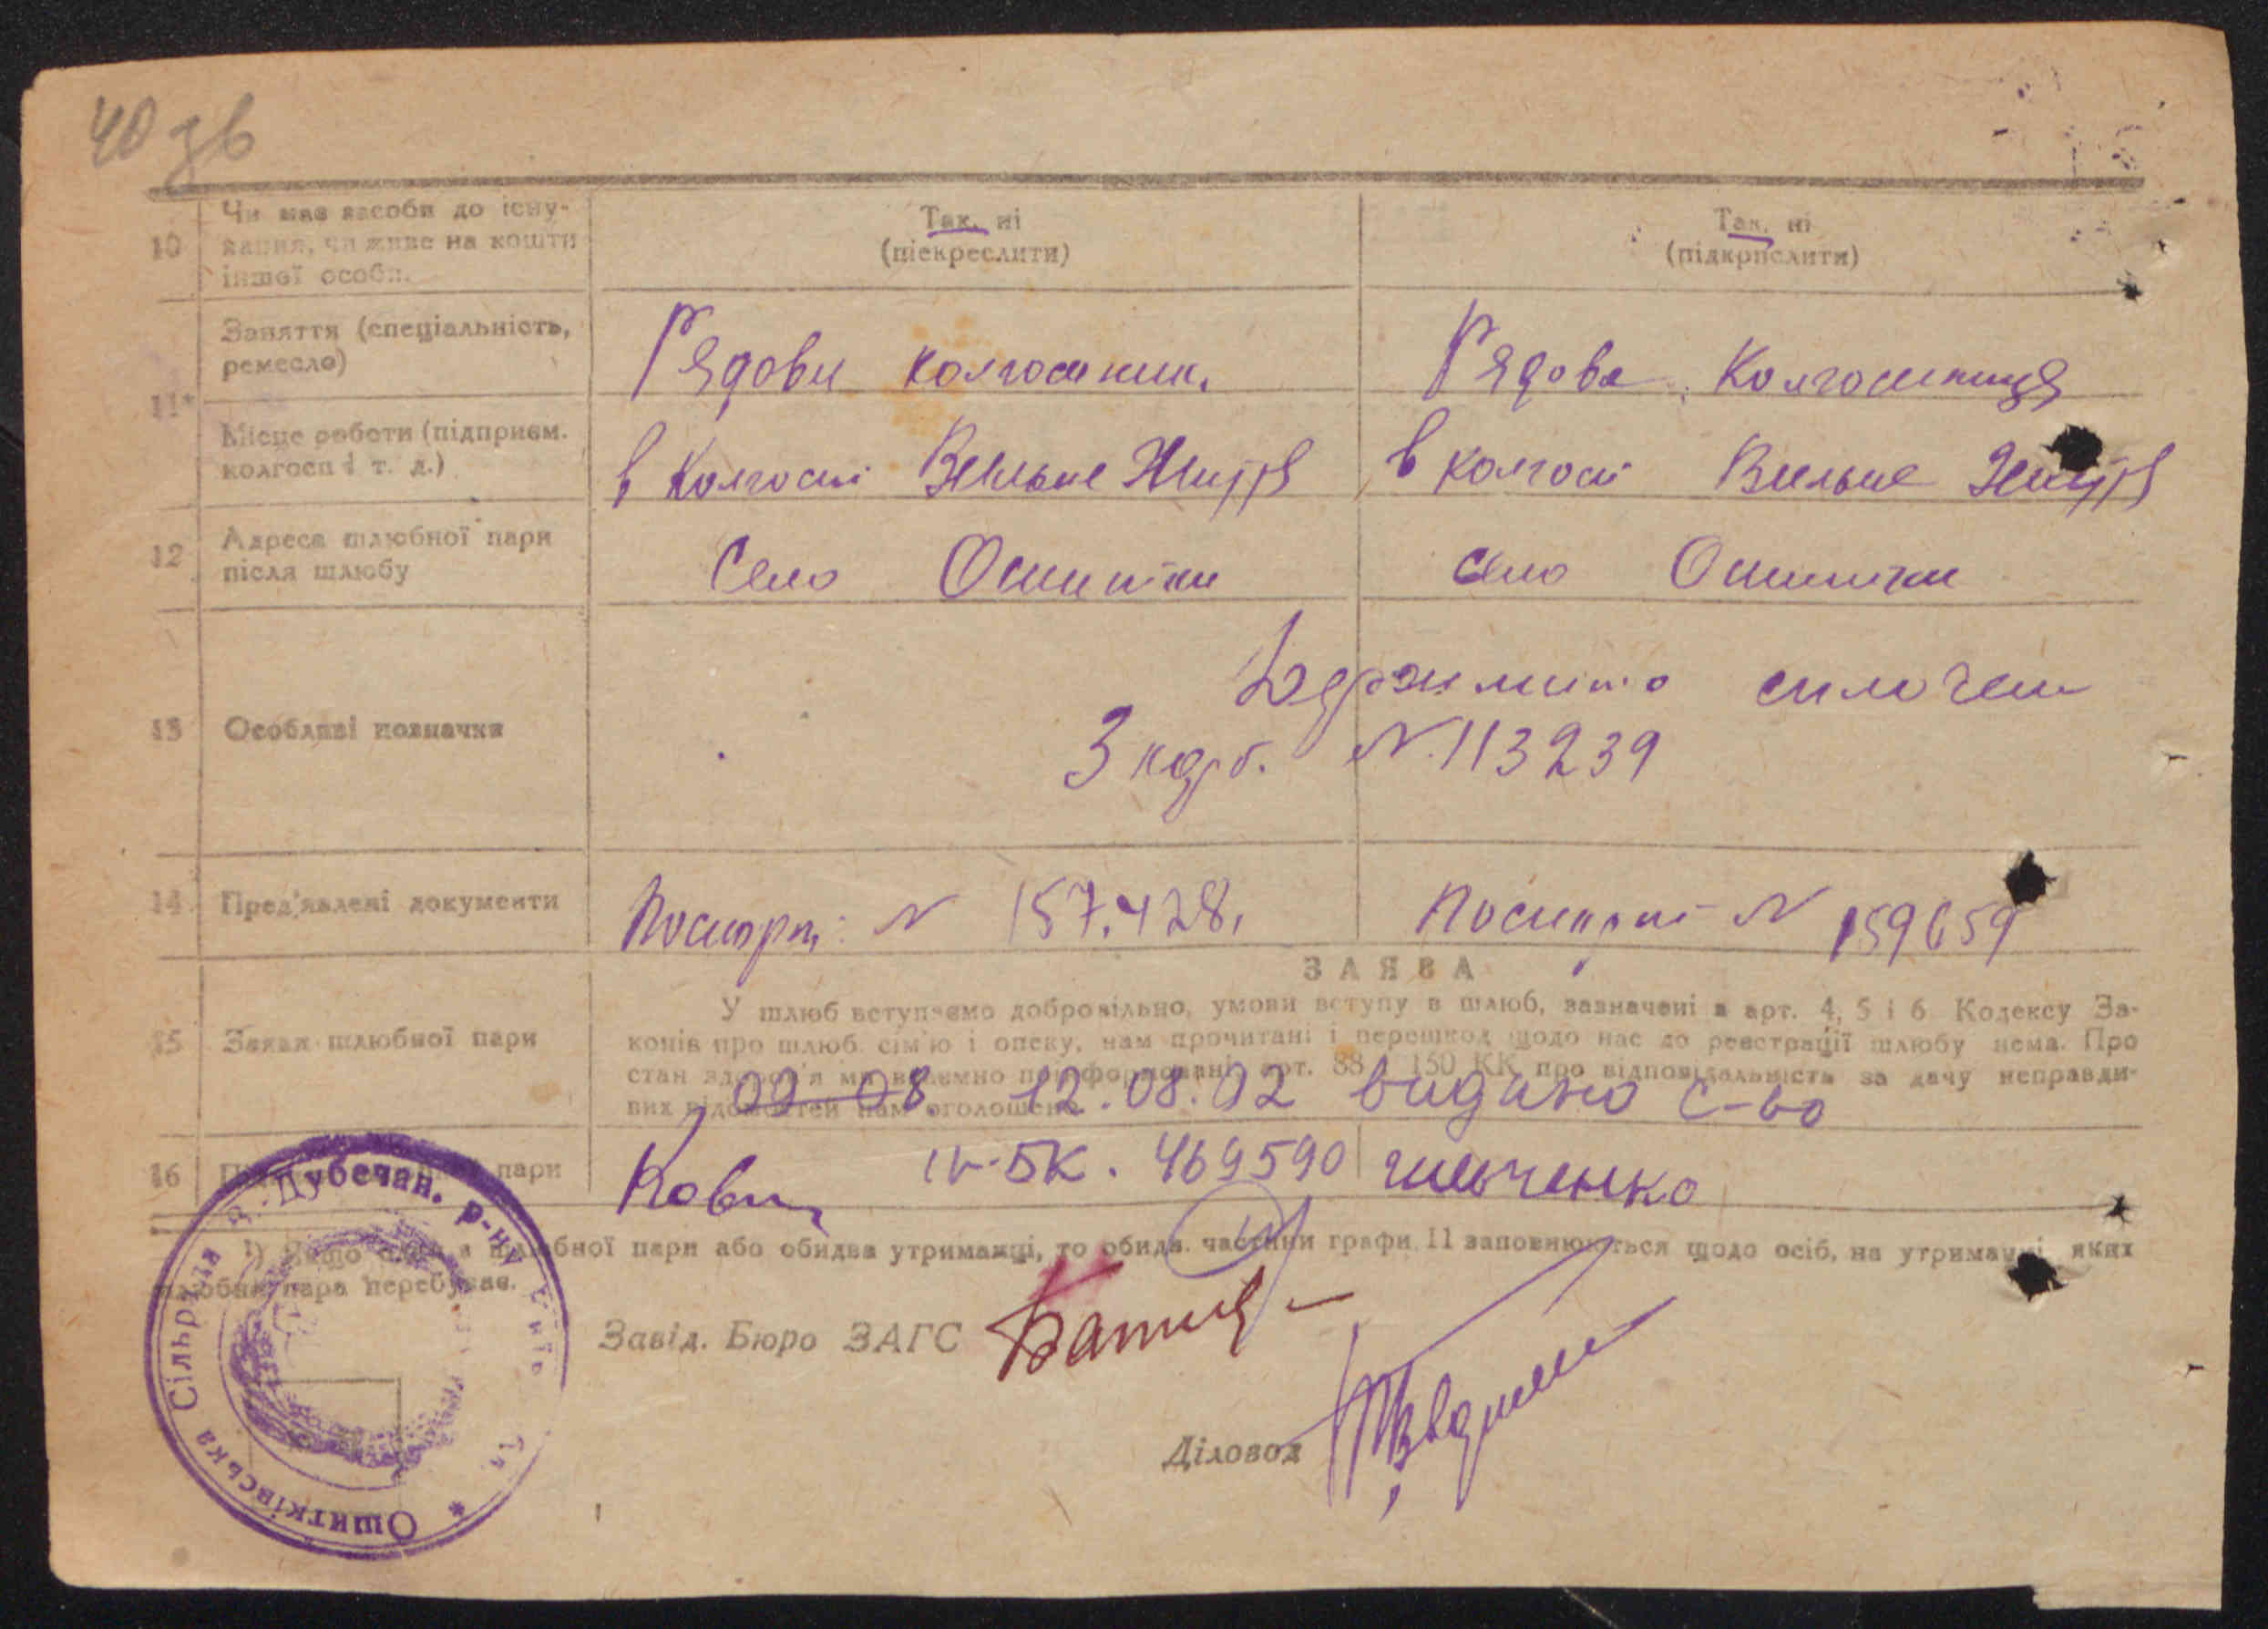 40 зв
10 Чи має засоби до існу-
вання, чи живе на кошти
іншої особи.
Так, ні
(піекреслити)
Так, ні
(підкрислити)
11* Заняття (спеціальність,
ремесло)
Рядови колгосник.
Рядова Колгосниця
Місце роботи (підприєм.
колгосп і т. д.)
в колгоспі Вильне Життя
в колгосі Вильне Життя
12 Адреса шлюбної пари
після шлюбу
Село Ошитки
село Ошитки
13 Особливі позначки
Держмито
3 карб. N 113239
14 Пред'явлені документи
Паспорт N 157.428.
Паспорт N 159659
ЗАЯВА
15 Заява шлюбної пари
У шлюб вступаємо добровільно, умови вступу в шлюб, зазначені в арт. 4, 5 і 6 Кодексу За-
конів про шлюб сім'ю і опеку, нам прочитані і перешкод щодо нас до реєстрації шлюбу нема. Про
стан здоров'я ми взаємно поінформовані, арт. 88 і 130 КК про відповідальність за дачу неправди-
вих відомостей нам оголошено.
09-08 12.08.02 видано с-во
IV-БК. 469590
16 пари
ильченко
¹) Якщо один з шлюбної пари або обидва утриманці, то обидві частини графи 11 заповнюються щодо осіб, на утриманні яких
шлюбна пара перебуває.
Завід. Бюро ЗАГС
Діловод
Ошитківська Сільрада Дубечан. р-ну